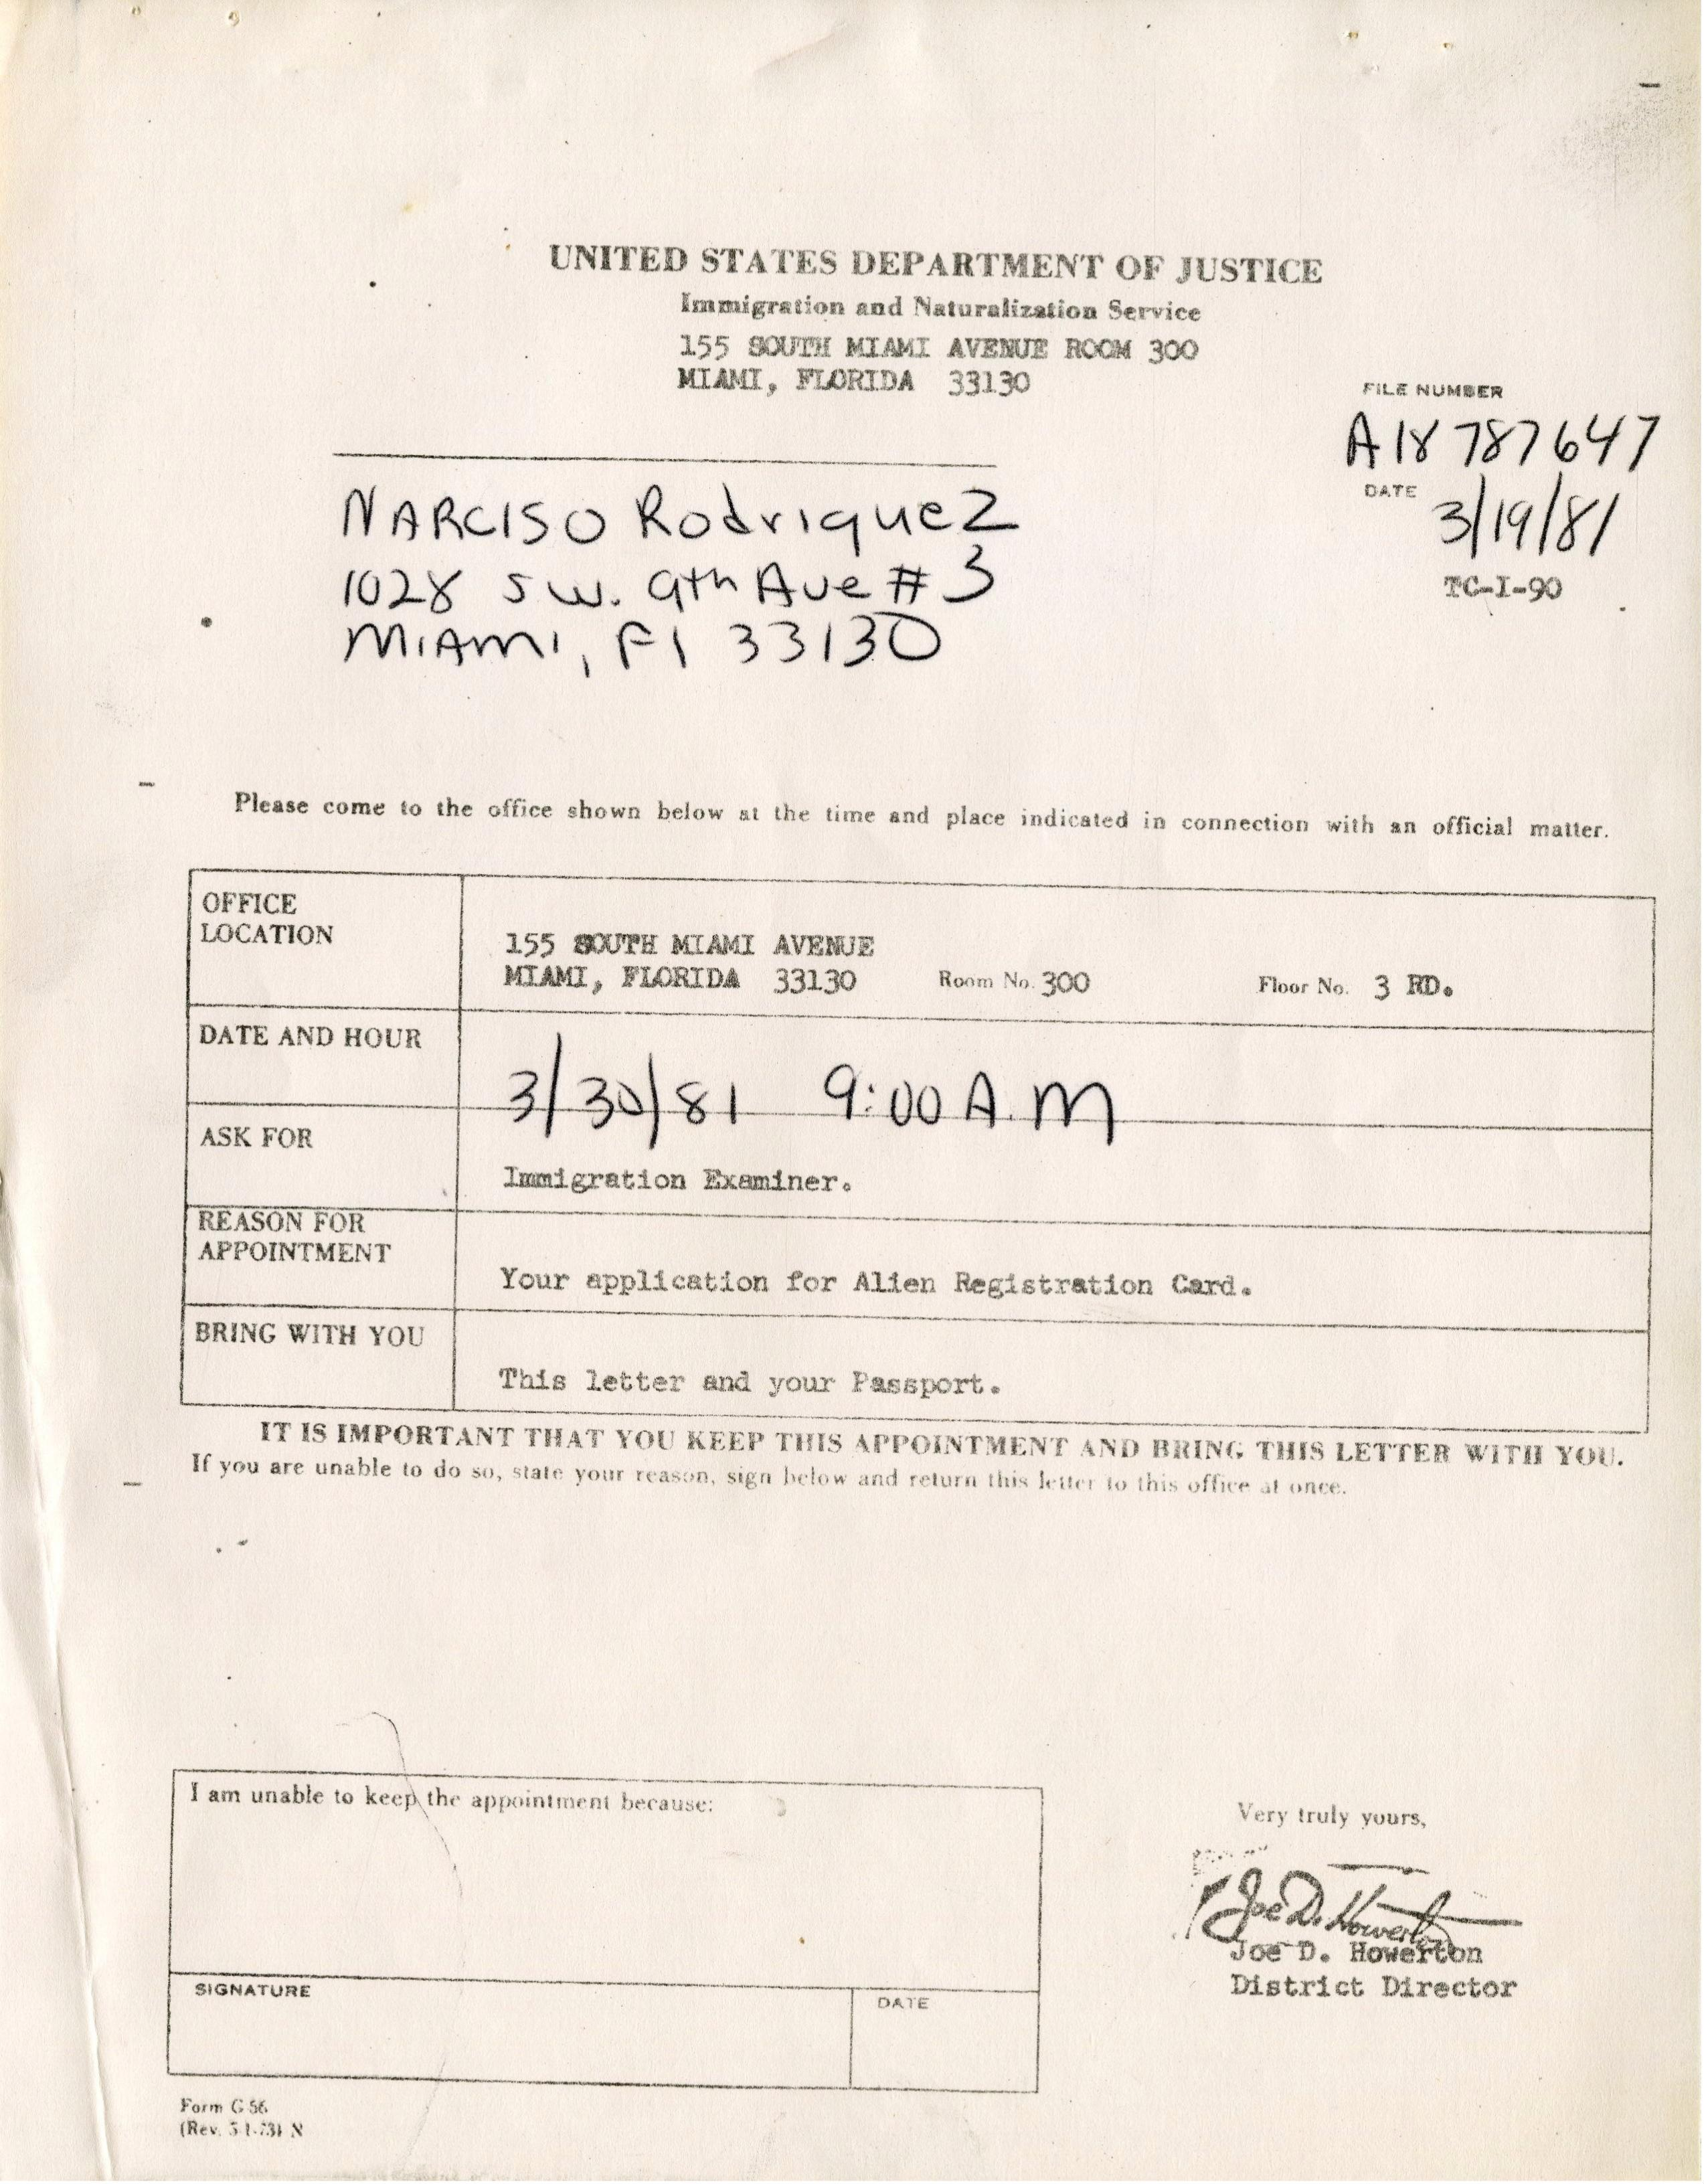 UNITED STATES DEPARTMENT OF JUSTICE
Immigration and Naturalization Service
155 SOUTH MIAMI AVENUE ROOM 300
MIAMI, FLORIDA 33130
FILE NUMBER
A18 787647
DATE
3/19/81
TC-I-90
NARCISO Rodriquez
1028 S.W. 9th Ave # 3
MIAMI, Fl 33130
Please come to the office shown below at the time and place indicated in connection with an official matter.
OFFICE
LOCATION
155 SOUTH MIAMI AVENUE
MIAMI, FLORIDA 33130 Room No. 300 Floor No. 3 RD.
DATE AND HOUR
3/30/81 9:00 A.M
ASK FOR
Immigration Examiner.
REASON FOR
APPOINTMENT
Your application for Alien Registration Card.
BRING WITH YOU
This letter and your Passport.
IT IS IMPORTANT THAT YOU KEEP THIS APPOINTMENT AND BRING THIS LETTER WITH YOU.
If you are unable to do so, state your reason, sign below and return this letter to this office at once.
I am unable to keep the appointment because:
SIGNATURE
DATE
Very truly yours,
Joe D. Howerton
Joe D. Howerton
District Director
Form G-56
(Rev. 5-1-73) N